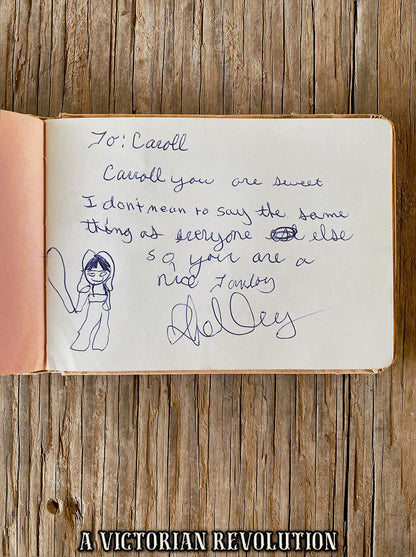 To: Caroll
Carroll you are sweet
I don't mean to say the same
thing as everyone else
so you are a
nice
Shelley
A VICTORIAN REVOLUTION